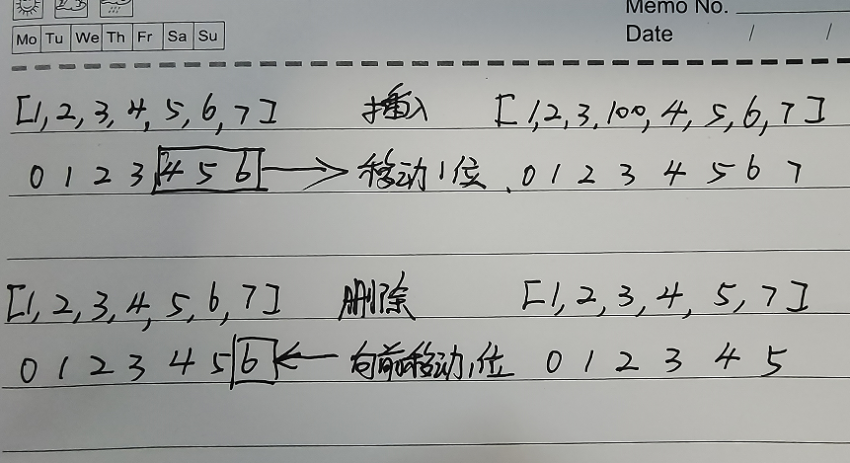 Memo No.
Mo Tu We Th Fr Sa Su
Date / /
[1,2,3,4,5,6,7] 插入 [1,2,3,100,4,5,6,7]
0 1 2 3 4 5 6 → 移动1位 0 1 2 3 4 5 6 7
[1,2,3,4,5,6,7] 删除 [1,2,3,4,5,7]
0 1 2 3 4 5 6 ← 向前移动1位 0 1 2 3 4 5